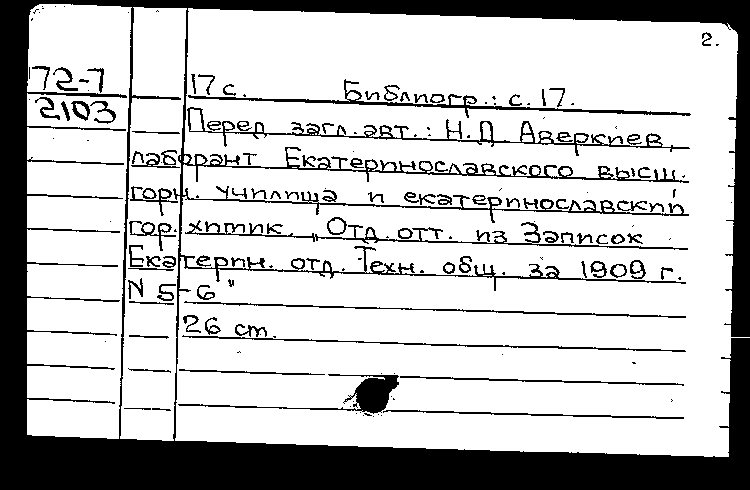 2.
72-7
2103
17 с. Библиогр.: с. 17.
Перед загл. авт.: Н.Д. Аверкиев,
лаборант Екатеринославского высш.
горн. училища и екатеринославский
гор. химик. „Отд. отт. из Записок
Екатерин. отд. Техн. общ. за 1909 г.
N 5-6"
26 см.